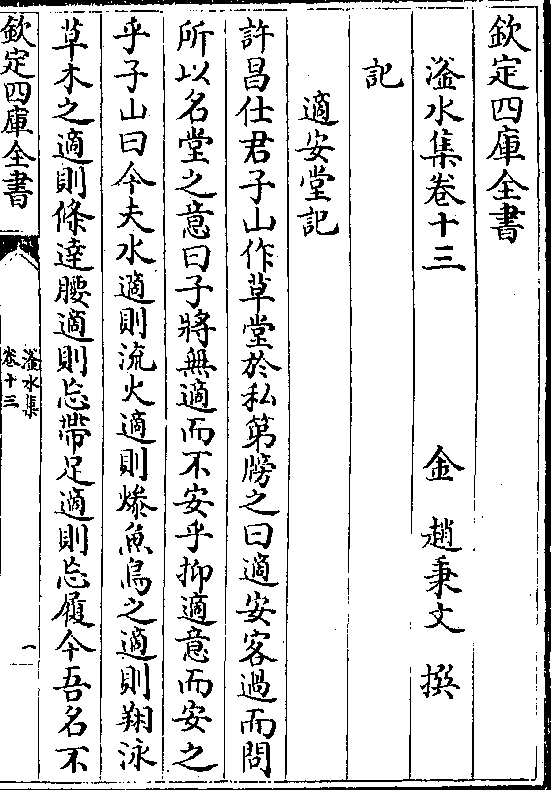 欽定四庫全書
滏水集卷十三
金 趙秉文 撰
記
適安堂記
許昌仕君子山作草堂於私第牓之曰適安客過而問
所以名堂之意曰子將無適而不安乎抑適意而安之
乎子山曰今夫水適則流火適則燦魚鳥之適則翔泳
草木之適則條達腰適則忘帶足適則忘履今吾名不
欽定四庫全書
滏水集
卷十三
一